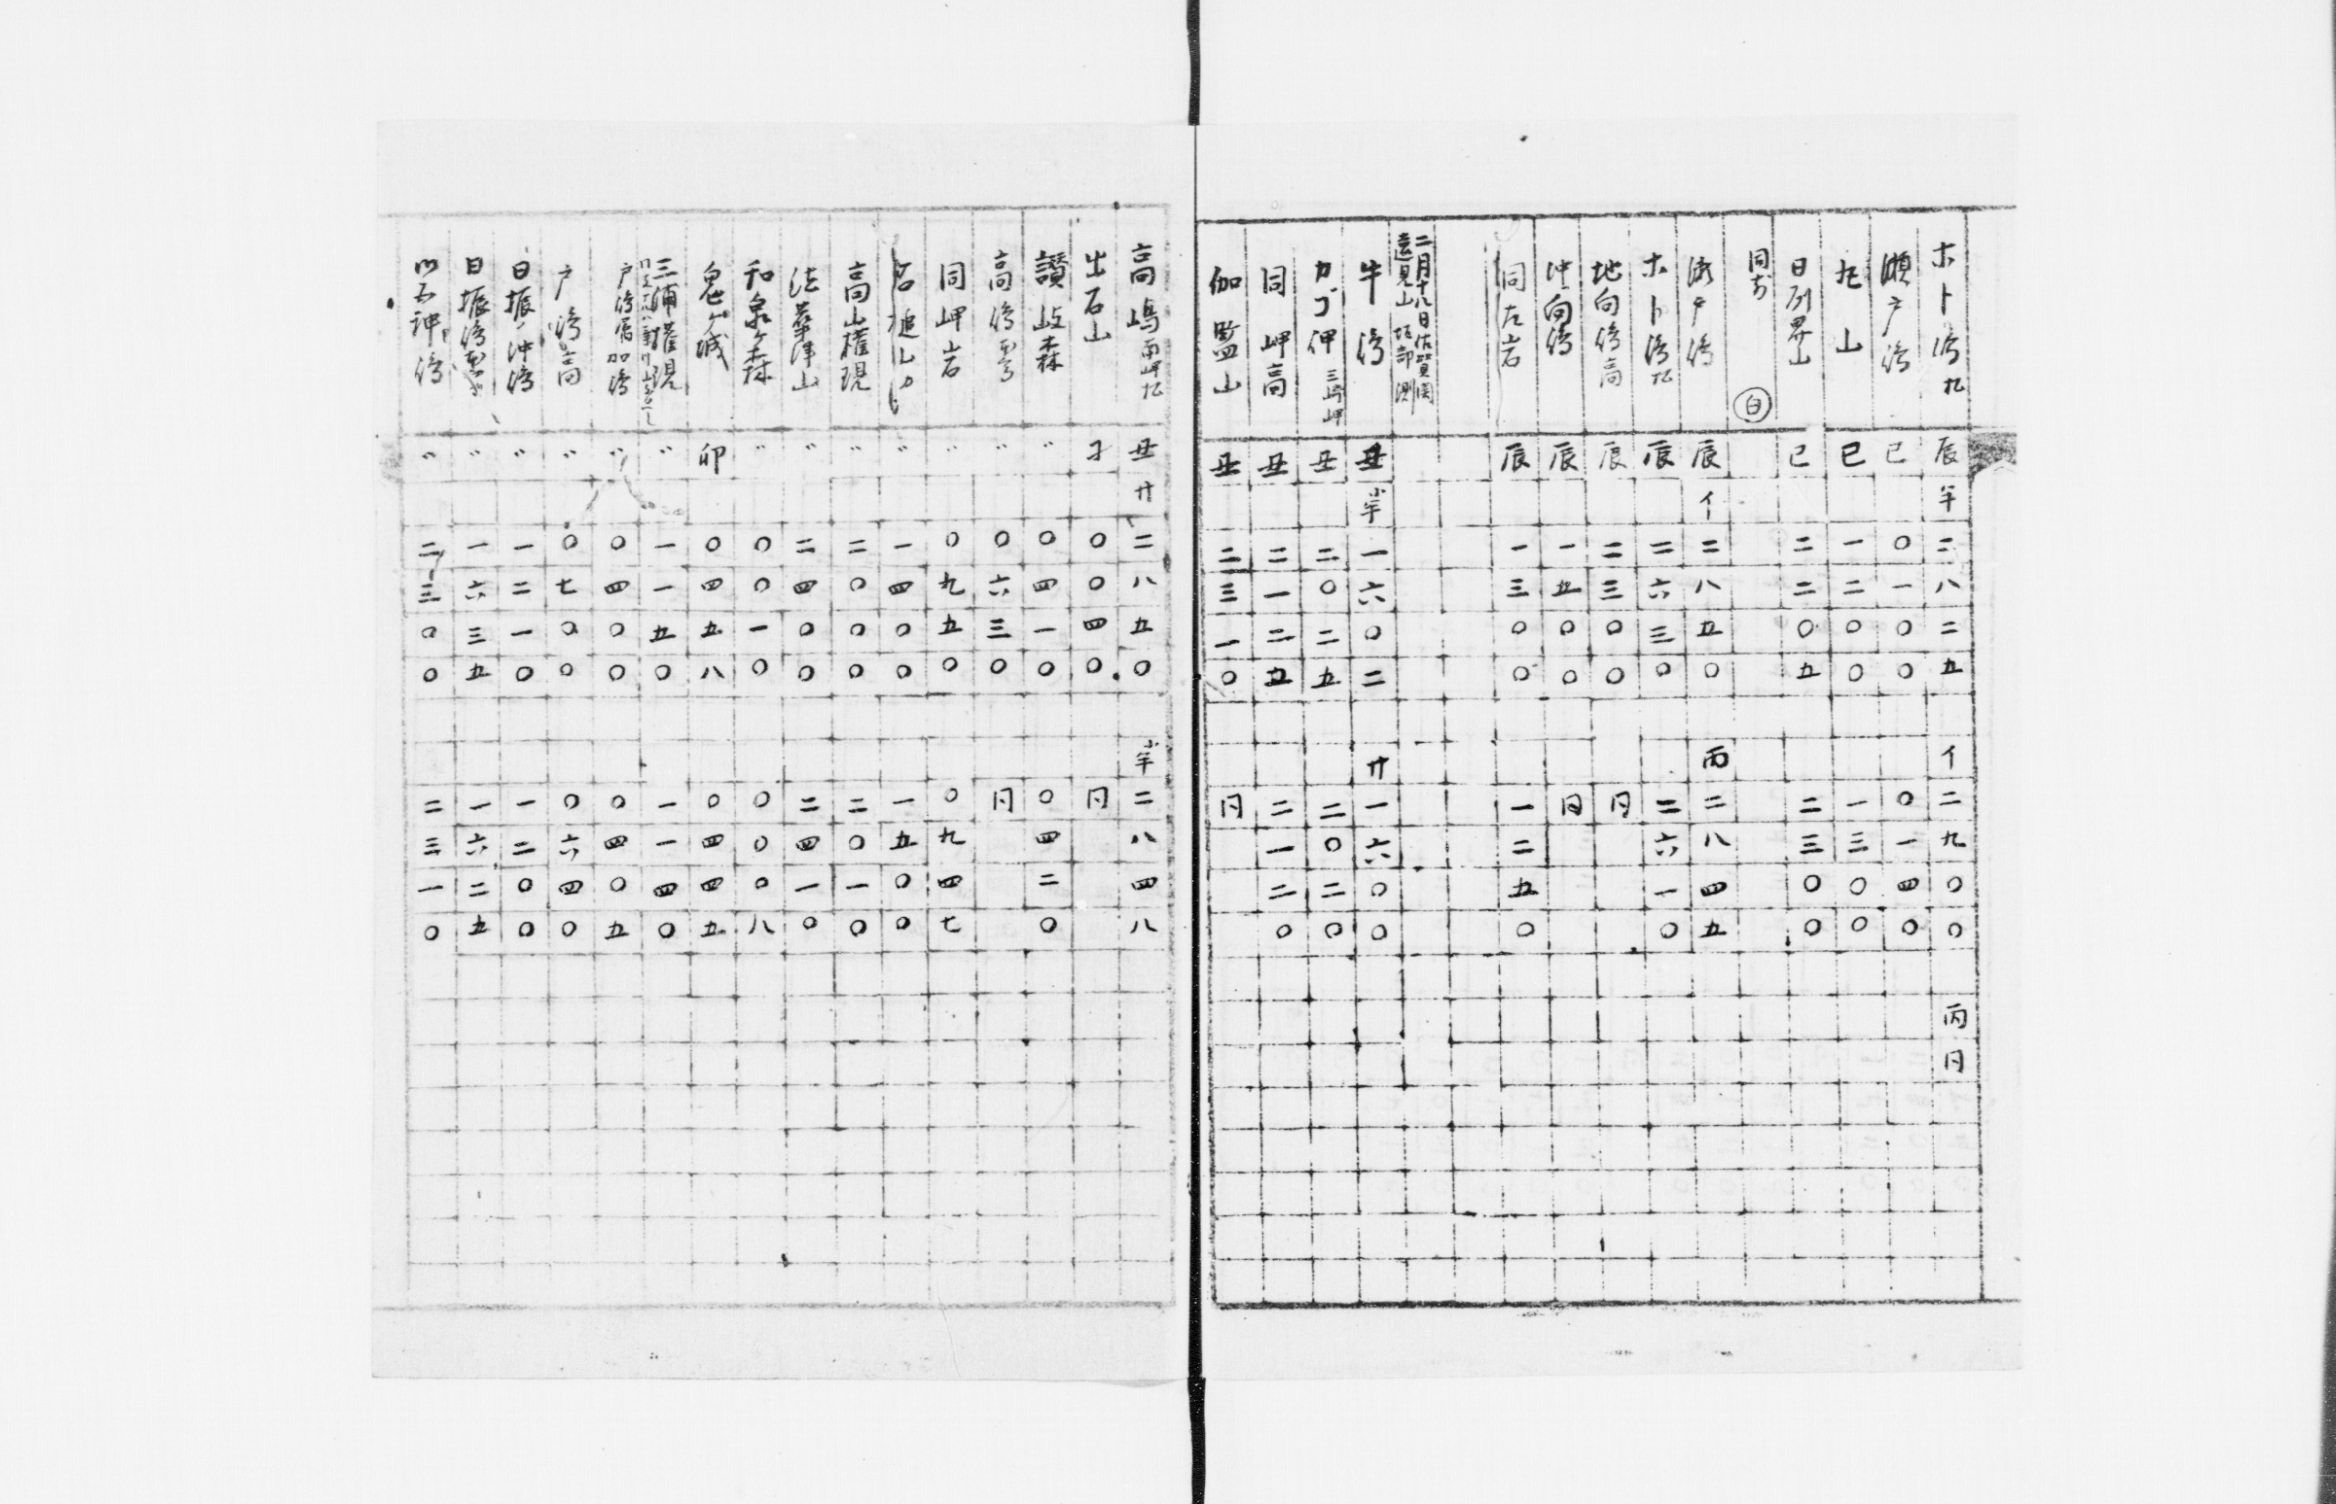 ホト嶋丸 辰 半 二八二五 イ 二九〇〇 丙 同
瀬戸嶋 巳 〇一〇〇 〇一四〇
丸山 巳 一二〇〇 一三〇〇
日別山 巳 二二〇五 二三〇〇
同
白
戸嶋 辰 イ 二八五〇 丙 二八四五
ホト嶋丸 辰 二六三〇 二六一〇
地向嶋高 辰 二三〇〇 同
沖向嶋 辰 一五〇〇 同
同左岩 辰 一三〇〇 一二五〇
二月十八日佐賀関
遠見山 坂部測
牛嶋 丑 半 一六〇二 廾 一六〇〇
カゴ岬 三崎岬 丑 二〇二五 二〇二〇
同岬高 丑 二一二五 二一二〇
伽藍山 丑 二三一〇 同
高嶋 岬丸 丑 廾 二八五〇 半 二八四八
出石山 〇〇四〇 同
讃岐森 〃 〇四一〇 〇四二〇
高嶋 〃 〇六三〇 同
同岬岩 〃 〇九五〇 〇九四七
石槌山カ 〃 一四〇〇 一五〇〇
高山権現 〃 二〇〇〇 二〇一〇
法華津山 〃 二四〇〇 二四一〇
和泉ヶ森 〃 〇〇一〇 〇〇〇八
鬼ヶ城 卯 〇四五八 〇四四五
三浦権現 〃 一一五〇 一一四〇
戸嶋属加嶋 〃 〇四〇〇 〇四〇五
戸嶋高 〃 〇七〇〇 〇六四〇
日振ノ沖嶋 〃 一二一〇 一二〇〇
日振嶋 〃 一六三五 一六二五
沖嶋 〃 二三〇〇 二三一〇